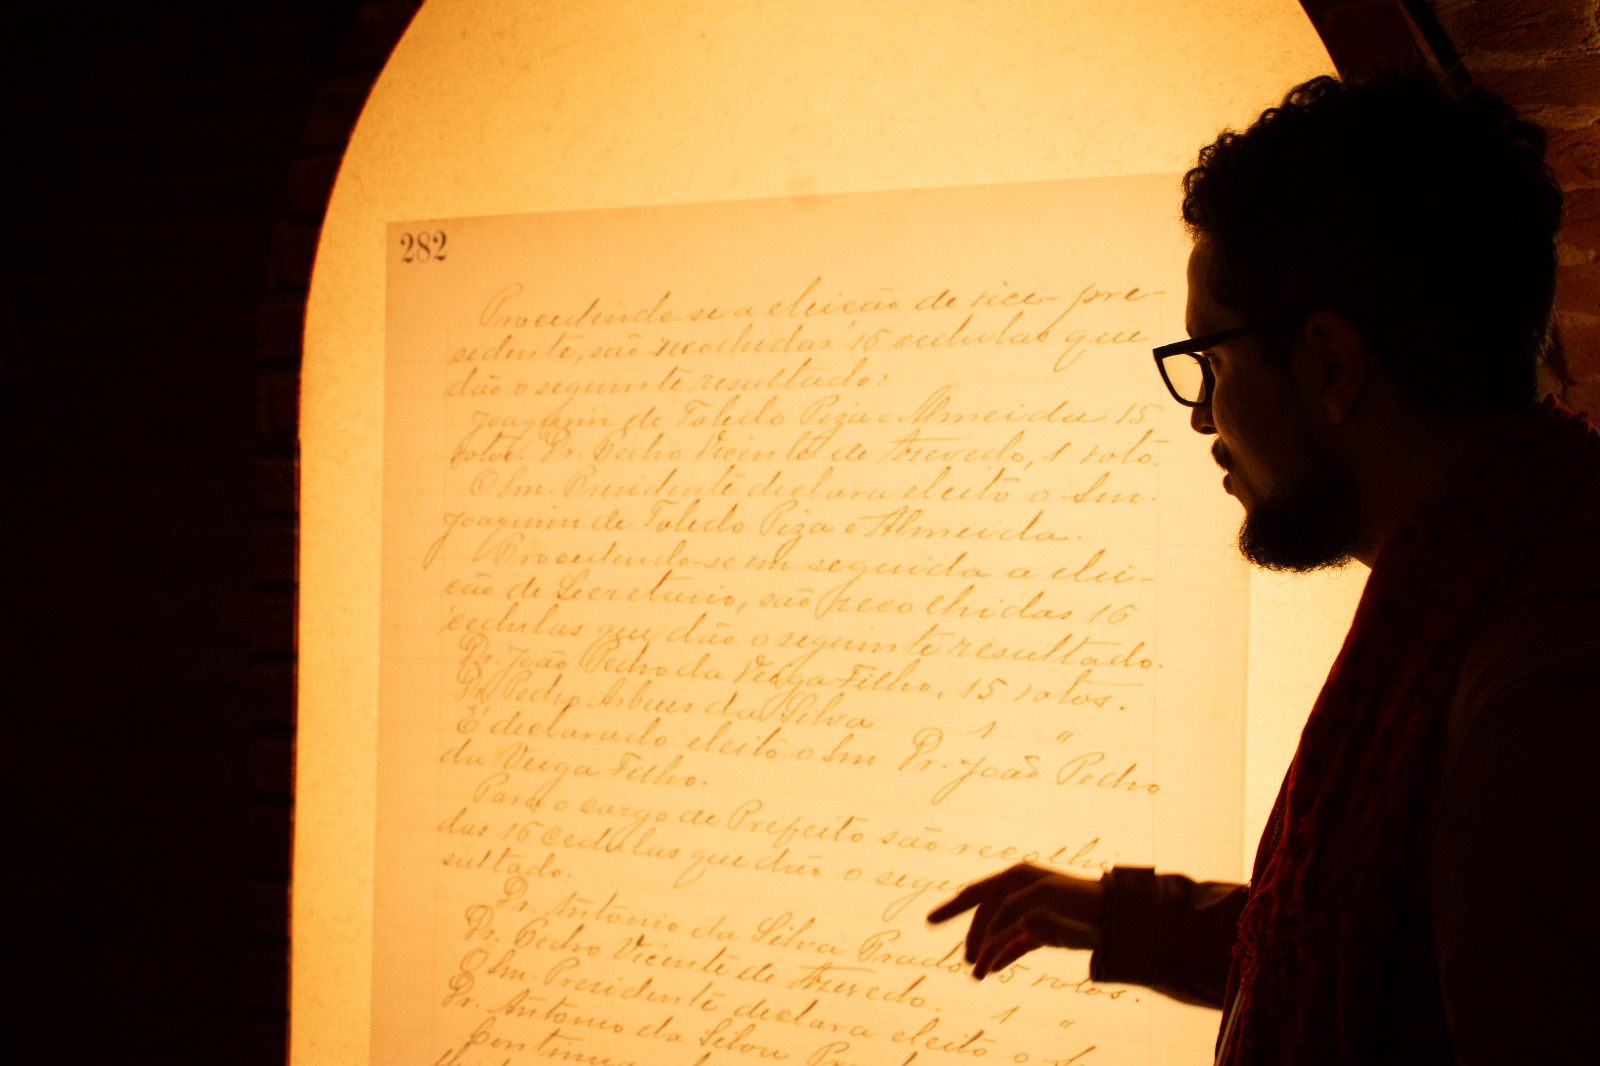 282
Procedendo-se a eleicão de vice-pre-
sidente, são recolhidas 16 cedulas que
dão o seguinte resultado:
Joaquim de Toledo Piza e Almeida 15
votos. Dr. Pedro Vicente de Azevedo, 1 voto.
O Snr. Presidente declara eleito o Snr.
Joaquim de Toledo Piza e Almeida.
Procedendo-se em seguida a elei-
cão de Secretario, são recolhidas 16
cedulas que dão o seguinte resultado.
Dr. João Pedro da Veiga Filho, 15 votos.
Dr. Pedro Arbues da Silva 1 "
É declarado eleito o Snr. Dr. João Pedro
da Veiga Filho.
Para o cargo de Prefeito são recolhi
das 16 cedulas que dão o segu
sultado:
Dr. Antonio da Silva Prado. 15 votos.
Dr. Pedro Vicente de Azevedo. 1 "
O Snr. Presidente declara eleito o
Dr. Antonio da Silva
Continua